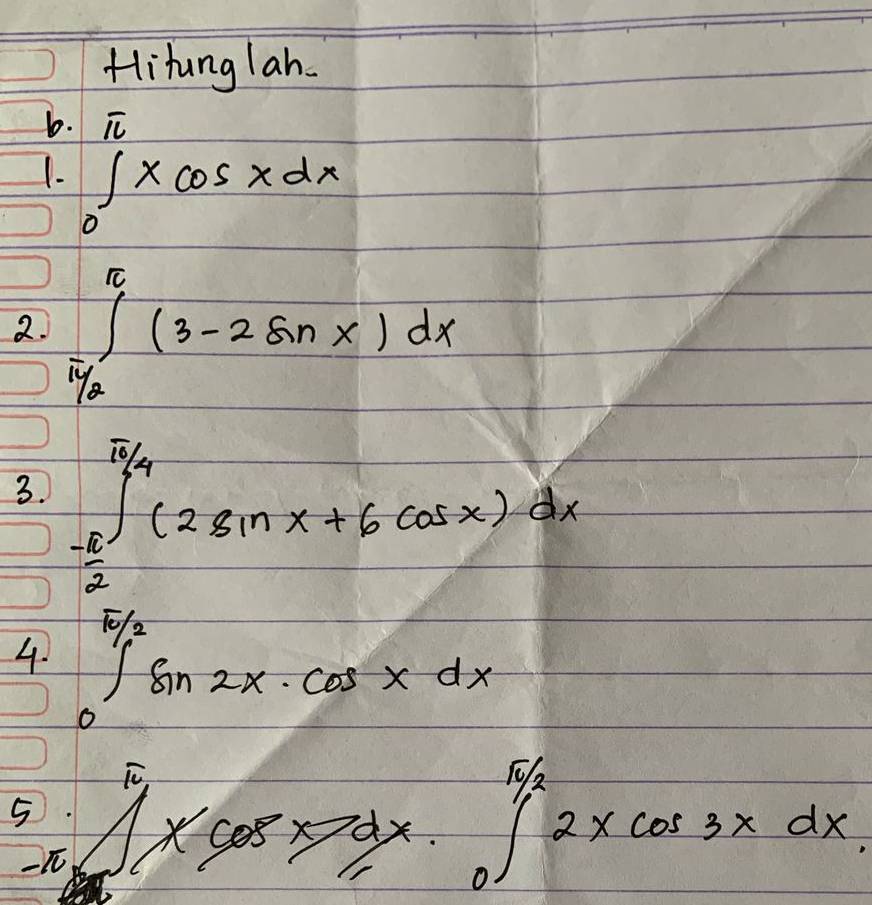 Hitunglah.
b.
1. ∫₀^π x cos x dx
2. ∫_{π/2}^{π} (3 - 2 sin x) dx
3. ∫_{-π/2}^{π/4} (2 sin x + 6 cos x) dx
4. ∫₀^{π/2} sin 2x . cos x dx
5. ∫_{-π}^{π} x cos x dx. ∫₀^{π/2} 2x cos 3x dx.